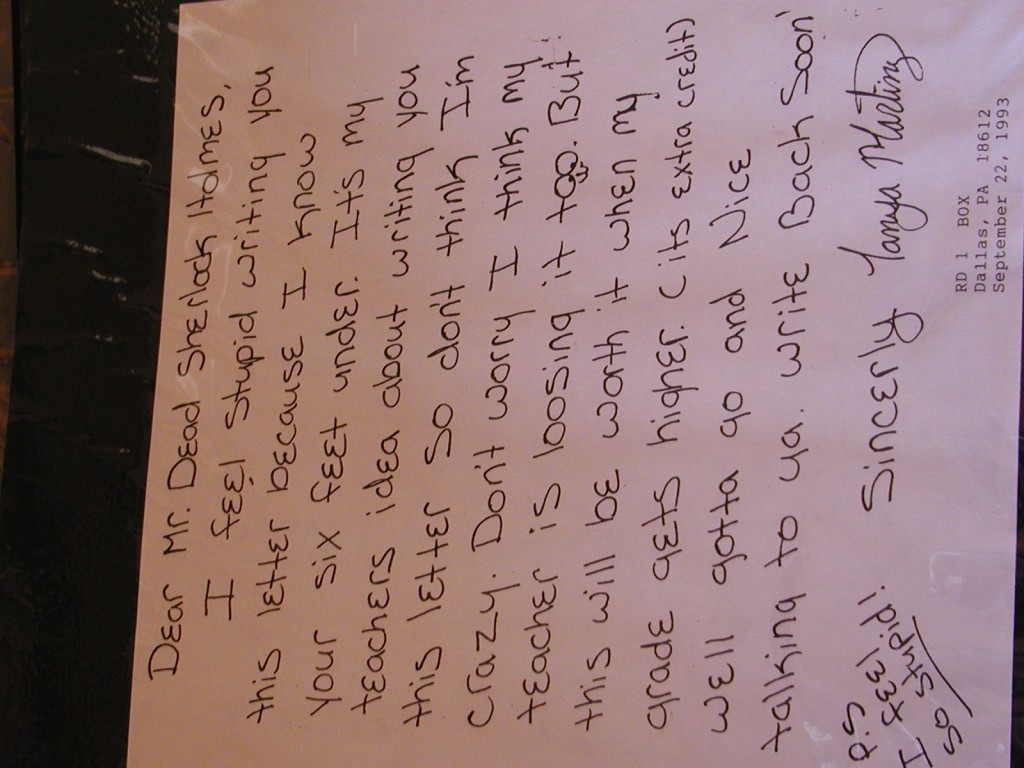 Dear Mr. Dead Sherlock Holmes,
I feel stupid writing you
this letter because I know
your six feet under. It's my
teachers idea about writing you
this letter so don't think I'm
crazy. Don't worry I think my
teacher is loosing it too. But
this will be worth it when my
grade gets higher. (its extra credit)
well gotta go and Nice
talking to ya. write Back soon!
Sincerly Tanya
P.S
I feel
so stupid!
RD 1 BOX
Dallas, PA 18612
September 22, 1993